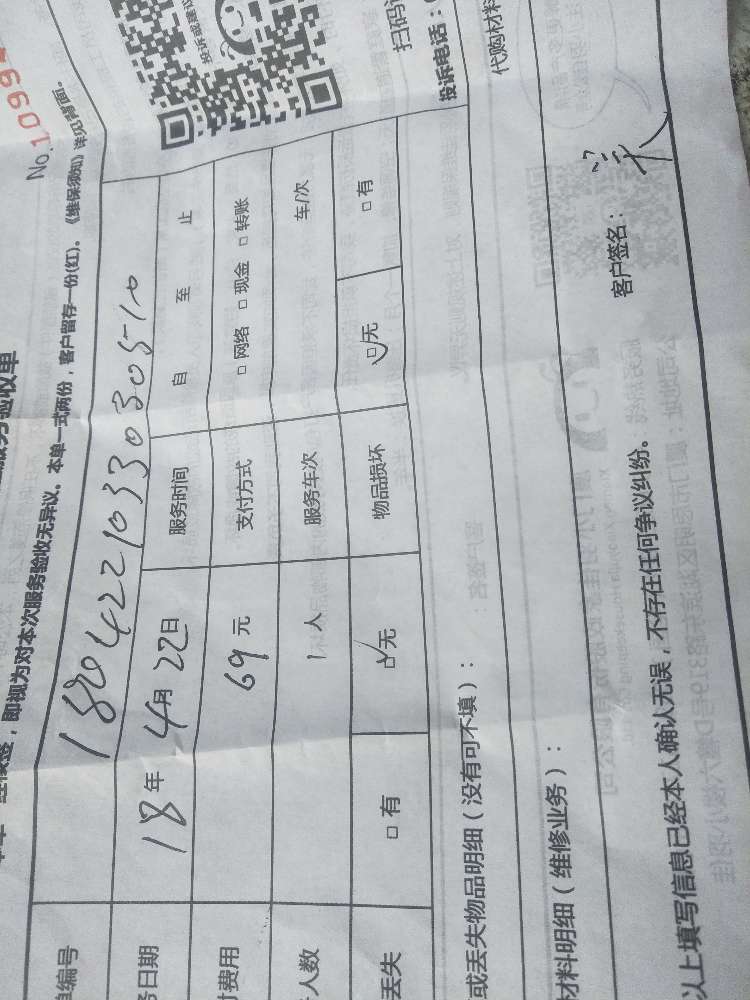 No.1099
一经核签，即视为对本次服务验收无异议。本单一式两份，客户留存一份(红)。《维保须知》详见背面。
单编号 180422103303 0305-10
务日期 18年 4月 22日 服务时间 自 至 止
付费用 69 元 支付方式 □ 网络 □ 现金 □ 转账
人数 1 人 服务车次 车/次
丢失 □ 有 □ 无 物品损坏 □ 无 □ 有
或丢失物品明细（没有可不填）：
投诉电话：
材料明细（维修业务）：
代购材料
以上填写信息已经本人确认无误，不存在任何争议纠纷。
客户签名：